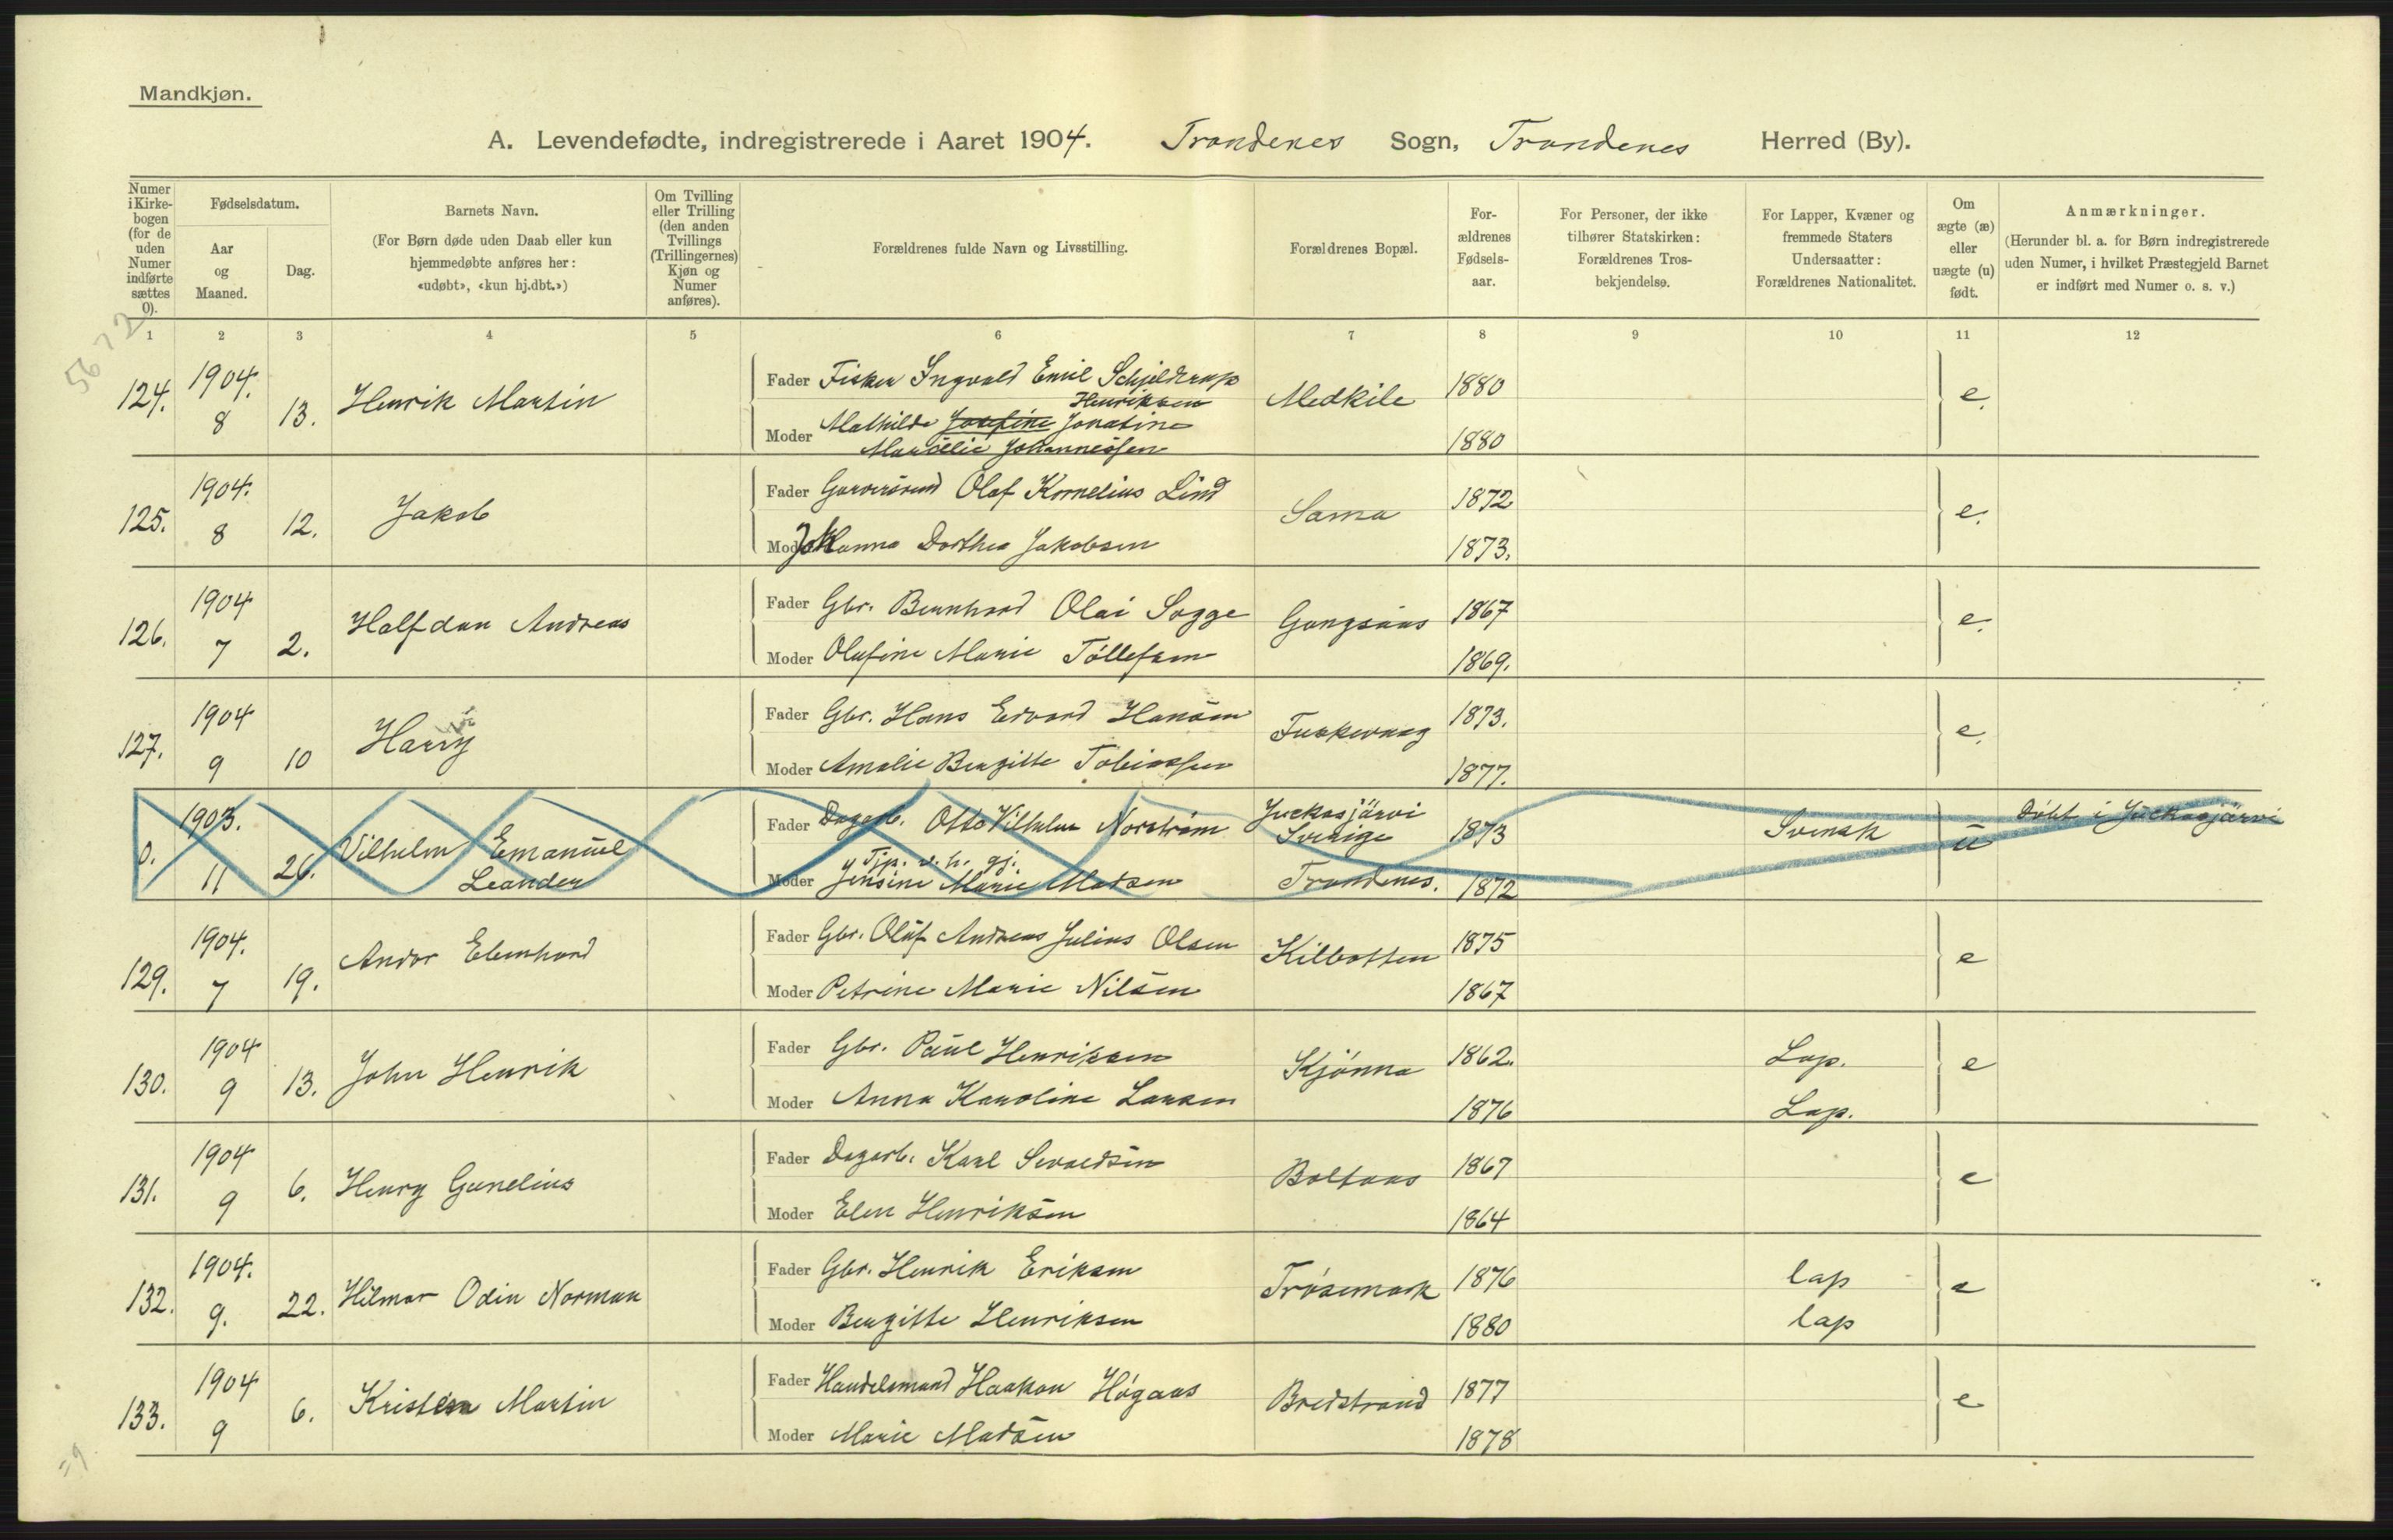 Mandkjøn.
A. Levendefødte, indregistrerede i Aaret 1904. Trondenes Sogn, Trondenes Herred (By).
Numer i Kirkebogen (for de uden Numer indførte sættes 0).
Fødselsdatum.
Aar og Maaned.
Dag.
Barnets Navn.
(For Børn døde uden Daab eller kun hjemmedøbte anføres her: «udøbt», «kun hj.dbt.»)
Om Tvilling eller Trilling (den anden Tvillings (Trillingernes) Kjøn og Numer anføres).
Forældrenes fulde Navn og Livsstilling.
Forældrenes Bopæl.
Forældrenes Fødselsaar.
For Personer, der ikke tilhører Statskirken: Forældrenes Trosbekjendelse.
For Lapper, Kvæner og fremmede Staters Undersaatter: Forældrenes Nationalitet.
Om ægte (æ) eller uægte (u) født.
Anmærkninger.
(Herunder bl. a. for Børn indregistrerede uden Numer, i hvilket Præstegjeld Barnet er indført med Numer o. s. v.)
1 2 3 4 5 6 7 8 9 10 11 12
5672
124. 1904. 8 13. Henrik Martin
Fader Fisker Ingvald Emil Schjelderup Henriksen Medkile 1880 e.
Moder Mathilde Josefine Jonatine Marselie Johannessen 1880
125. 1904. 8 12. Jakob
Fader Olaf Kornelius Lind Sama 1872 e.
Moder Johanna Dorthea Jakobsen 1873.
126. 1904 7 2. Halfdan Andreas
Fader Gbr. Bernhard Olai Sogge Gangsaas 1867 e.
Moder Olufine Marie Tollefsen 1869.
127. 1904 9 10 Harry
Fader Gbr. Hans Edvard Hansen Fuskevaag 1873. e.
Moder Amalie Bergitte Tobiassen 1877.
0. 1903. 11 26. Vilhelm Emanuel Leander
Fader Dagarb. Otto Vilhelm Norström Juckasjärvi Sverige 1873 Svensk u Döbt i Juckasjärvi
Moder Tjp. v. h. gj. Jensine Marie Madsen Trondenes. 1872
129. 1904. 7 19. Andor Ebenhard
Fader Gbr. Oluf Andreas Julius Olsen Kilbotten 1875 e
Moder Petrine Marie Nilsen 1867
130. 1904 9 13. John Henrik
Fader Gbr. Paul Henriksen Kjönna 1862. Lap. e
Moder Anna Karoline Larsen 1876 Lap.
131. 1904 9 6. Henry Gunelius
Fader Dagarb. Karl Sivaldsen Boltaas 1867 e
Moder Elen Henriksen 1864
132. 1904. 9. 22. Hilmar Odin Norman
Fader Gbr. Henrik Eriksen Trösemark 1876 lap e
Moder Bergitte Henriksen 1880 lap
133. 1904 9 6. Kristen Martin
Fader Handelsmand Haakon Högaas Bredstrand 1877 e
Moder Marie Madsen 1878